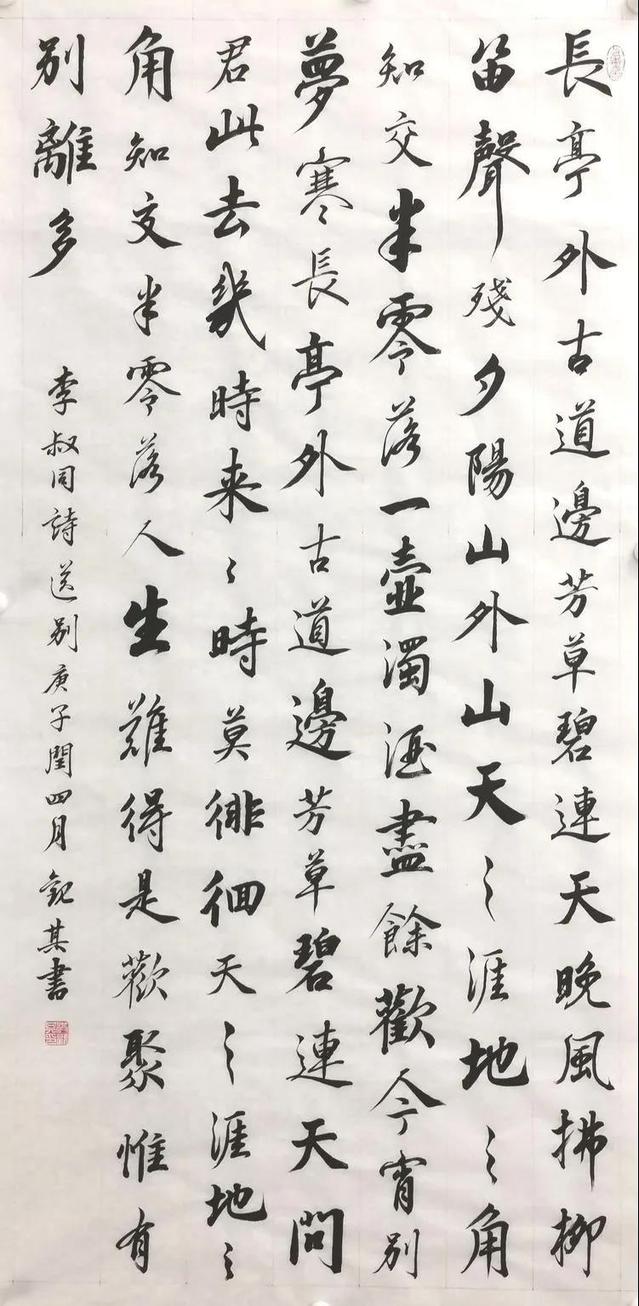 長亭外古道邊芳草碧連天晚風拂柳
笛聲殘夕陽山外山天〻涯地〻角
知交半零落一壺濁酒盡餘歡今宵別
夢寒長亭外古道邊芳草碧連天問
君此去幾時来〻時莫徘徊天〻涯地〻
角知交半零落人生難得是歡聚惟有
別離多
李叔同詩送別庚子閏四月觀其書